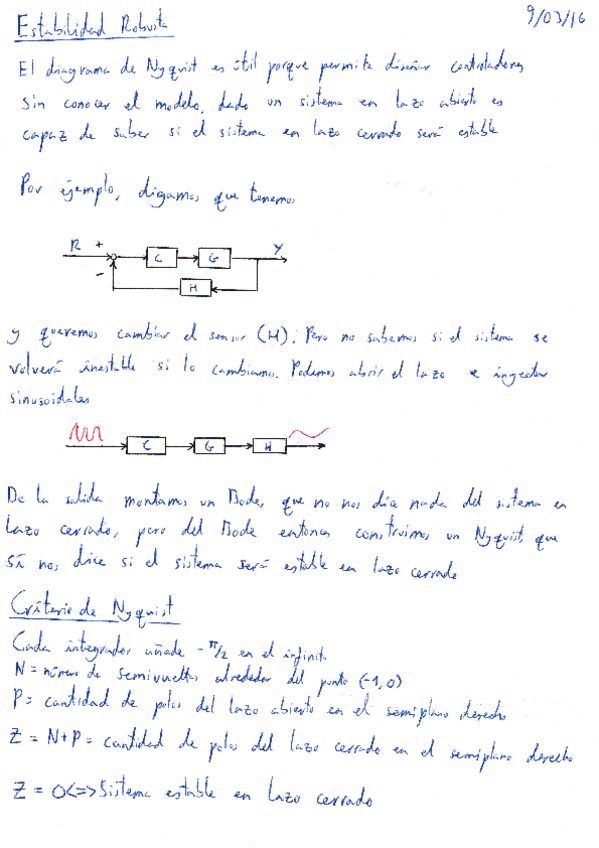 Estabilidad Robusta
9/03/16
El diagrama de Nyquist es útil porque permite diseñar controladores
sin conocer el modelo, dado un sistema en lazo abierto es
capaz de saber si el sistema en lazo cerrado será estable
Por ejemplo, digamos que tenemos
R + C G Y
- H
y queremos cambiar el sensor (H). Pero no sabemos si el sistema se
volverá inestable si lo cambiamos. Podemos abrir el lazo e inyectar
sinusoidales
C G H
De la salida montamos un Bode, que no nos dice nada del sistema en
lazo cerrado, pero del Bode entonces construimos un Nyquist, que
sí nos dice si el sistema será estable en lazo cerrado
Criterio de Nyquist
Cada integrador añade -π/2 en el infinito
N = número de semivueltas alrededor del punto (-1,0)
P = cantidad de polos del lazo abierto en el semiplano derecho
Z = N+P = cantidad de polos del lazo cerrado en el semiplano derecho
Z = 0 <=> Sistema estable en lazo cerrado